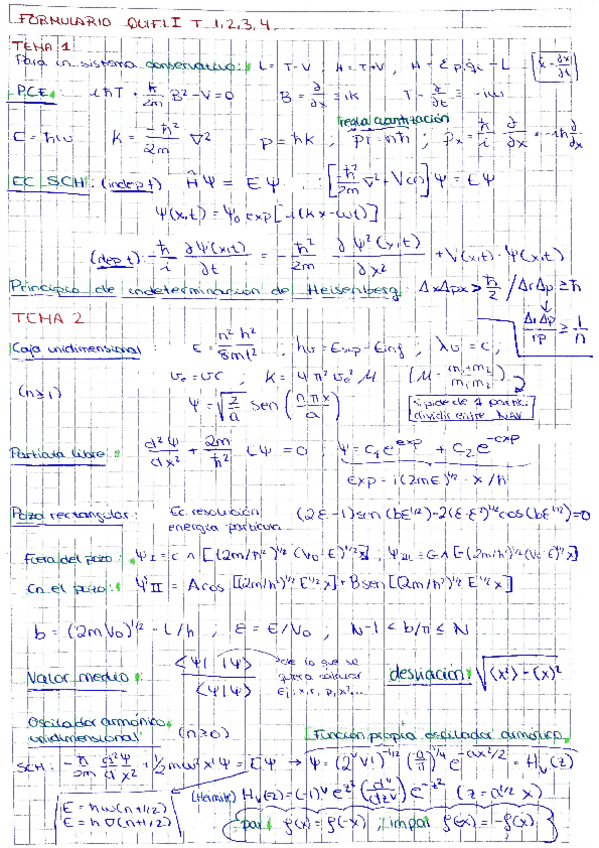 FORMULARIO QUIFI I T 1,2,3,4
TEMA 1
Para un sistema conservativo: L = T - V, H = T + V, H = Σ p_i q̇_i - L [ẋ = ∂x/∂t]
P.C.E: iħT + ħ/2m B² - V = 0 B = ∂/∂x = ik T = ∂/∂t = -iω
regla cuantización
E = ħω K = -ħ²/2m ∇² p = ħk, pr = nħ ; p_x = ħ/i ∂/∂x = -iħ ∂/∂x
EC SCH: (indep t) ĤΨ = EΨ : [ħ²/2m ∇² + V(r)]Ψ = EΨ
Ψ(x,t) = Ψ₀ exp[-i(kx-ωt)]
(dep t): -ħ/i ∂Ψ(x,t)/∂t = -ħ²/2m ∂Ψ²(x,t)/∂x² + V(x,t)·Ψ(x,t)
Principio de indeterminación de Heisenberg: ΔxΔpx ≥ ħ/2 / ΔrΔp ≥ ħ
ΔrΔp/rp ≥ 1/n
TEMA 2
Caja unidimensional: E = n²h²/8ml², hν = Esup - Einf ; λν = c,
(n≥1) νe = νc, K = 4π²νe²μ
Ψ = √(2/a) sen (nπx/a)
si pide de 1 partic. dividir entre NAV
Partícula libre: d²Ψ/dx² + 2m/ħ² EΨ = 0 ; Ψ = C₁e^exp + C₂e^-exp
exp = i(2mE)^1/2 · x/ħ
Pozo rectangular: Ec. resolución (2ε-1)sen(bε^1/2)-2(ε-ε²)^1/2 cos(bε^1/2)=0
energía partícula
Fuera del pozo:
En el pozo: Ψ II = A cos [(2m/ħ²)^1/2 E^1/2 x] + B sen[(2m/ħ²)^1/2 E^1/2 x]
b = (2mV₀)^1/2 · L/ħ ; ε = E/V₀, N-1 < b/π ≤ N
Valor medio: <Ψ| |Ψ>/<Ψ|Ψ> de lo que se quiera calcular Ej: x, r, p, x²... desviación: √<x²> - <x>²
Oscilador armónico unidimensional (n≥0) Función propia oscilador armónico
SCH: -ħ/2m d²Ψ/dx² + 1/2 mω²x²Ψ = EΨ → Ψ = (2^v v!)^-1/2 (a/π)^1/4 e^-ax²/2 · Hv(z)
E = ħω(n+1/2)
E = hν(n+1/2)
(Hermite) Hv(z) = (-1)^v e^z² (d^v/dz^v) e^-z² (z = a^1/2 x)
par: f(x) = f(-x) ; impar f(x) = -f(x)